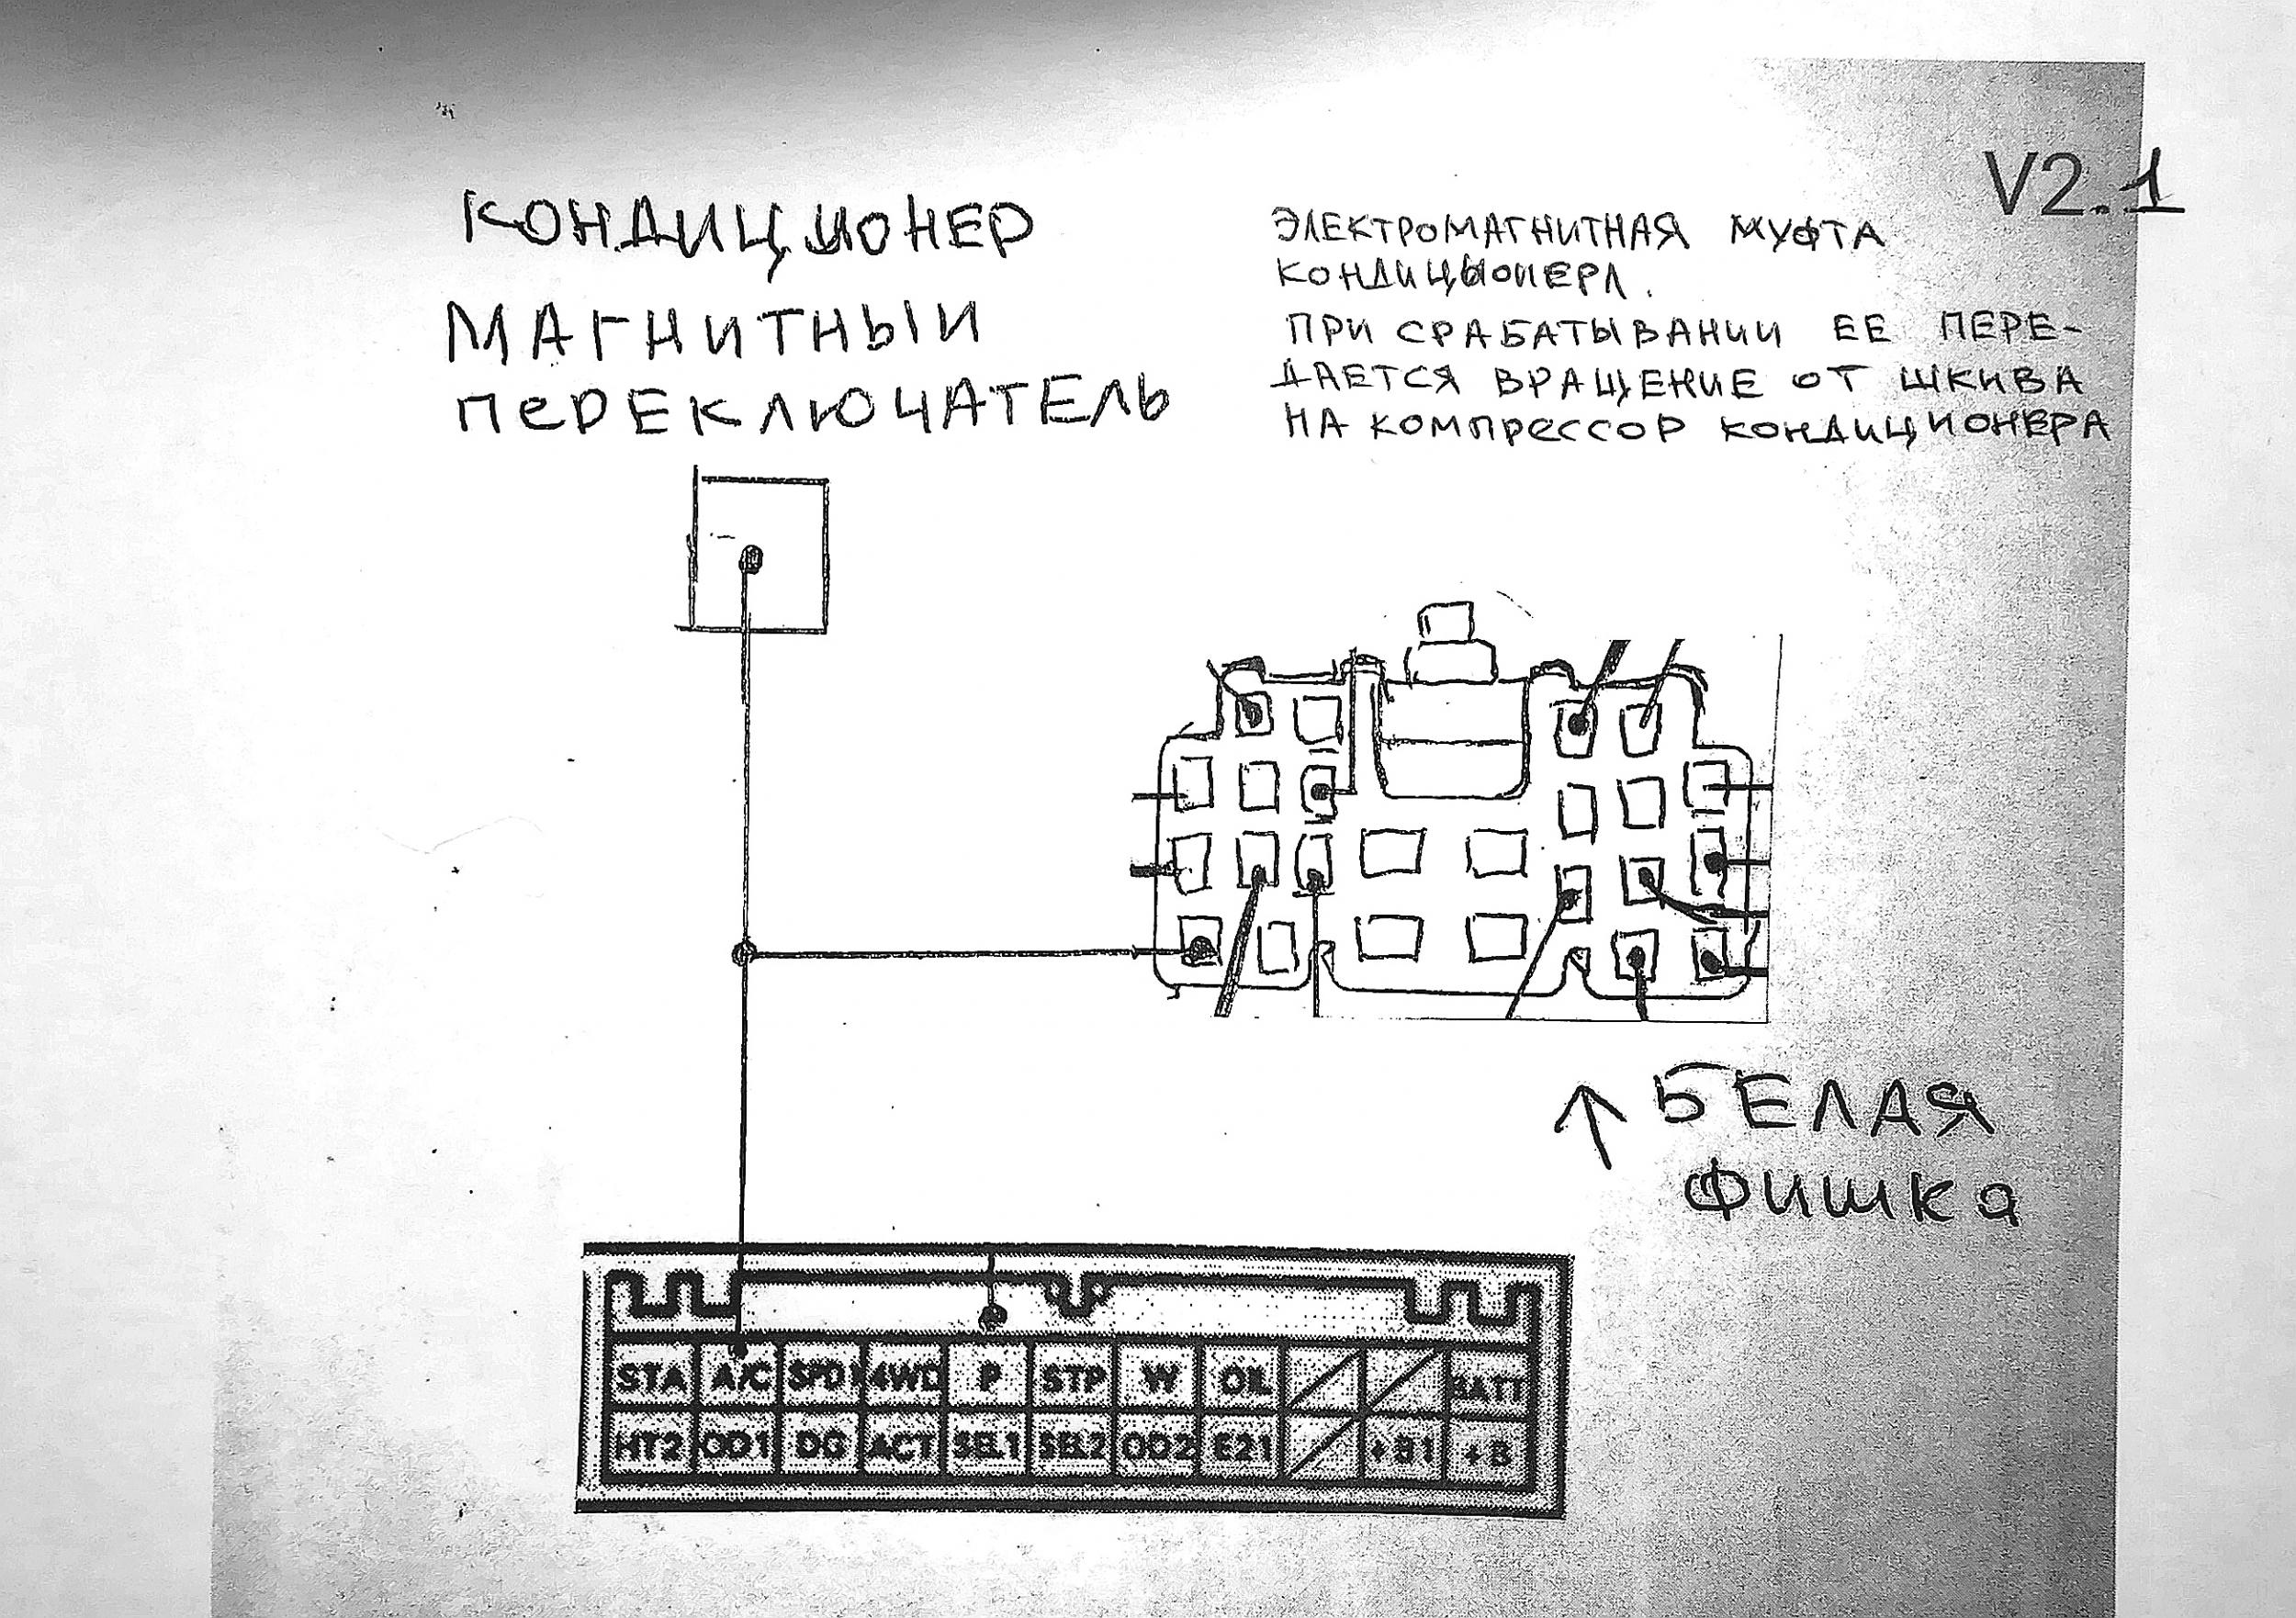 V2.1
КОНДИЦИОНЕР
МАГНИТНЫЙ
ПЕРЕКЛЮЧАТЕЛЬ
ЭЛЕКТРОМАГНИТНАЯ МУФТА
КОНДИЦЫОНЕРА.
ПРИ СРАБАТЫВАНИИ ЕЕ ПЕРЕ-
ДАЕТСЯ ВРАЩЕНИЕ ОТ ШКИВА
НА КОМПРЕССОР КОНДИЦИОНЕРА
БЕЛАЯ
ФИШКА
STA A/C SPD1 4WD P STP W OIL BATT
HT2 OD1 DG ACT SEL1 SEL2 OD2 E21 +B1 +B